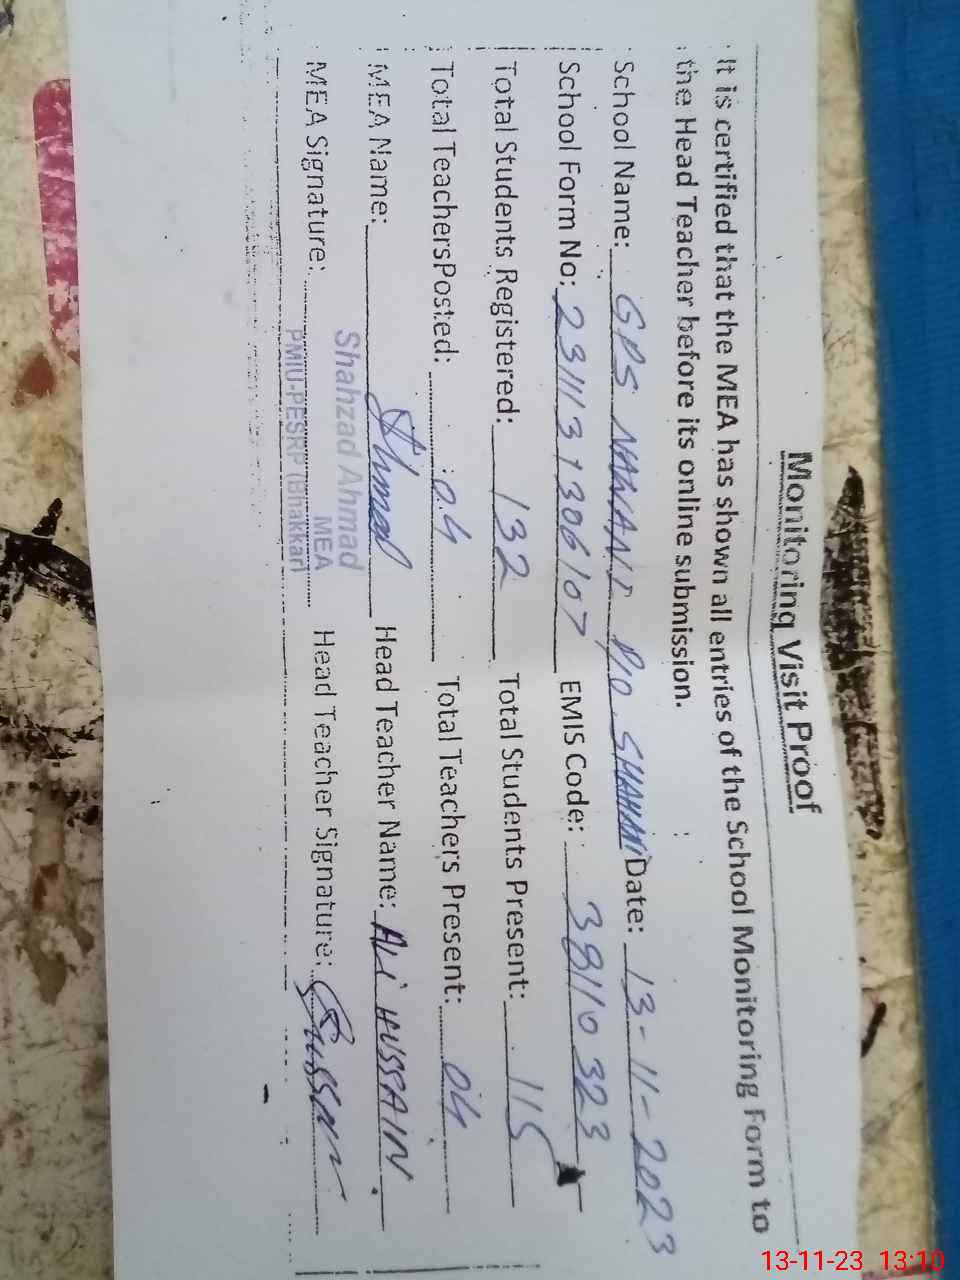 Monitoring Visit Proof
It is certified that the MEA has shown all entries of the School Monitoring Form to
the Head Teacher before its online submission.
School Name: GPS NAWANI P/O SHAHANI Date: 13-11-2023
School Form No: EMIS Code: 38110323
Total Students Registered: 132 Total Students Present: 115
Total TeachersPosted: 04 Total Teachers Present: 04
MEA Name: Ahmad Head Teacher Name: ALI HUSSAIN
MEA Signature: Head Teacher Signature:
Shahzad Ahmad
MEA
PMIU-PESRP (Bhakkar)
13-11-23 13:10